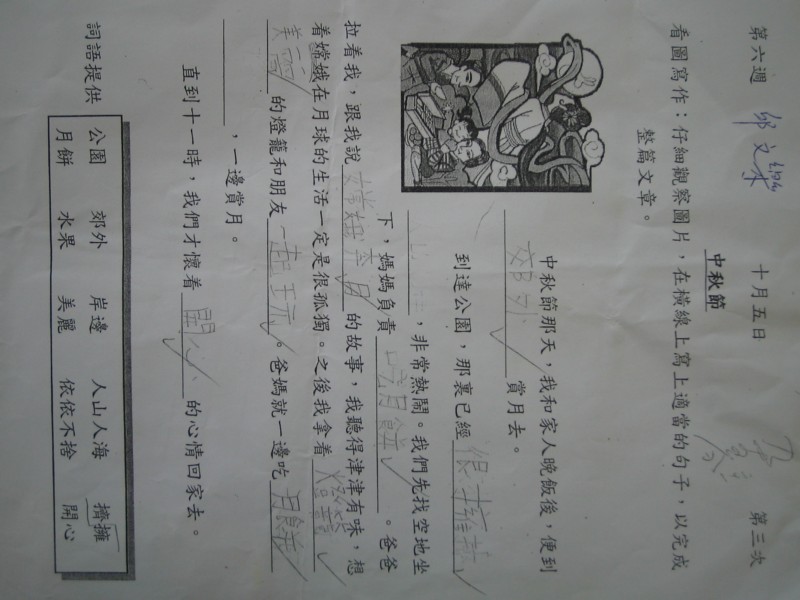 第六週 十月五日 第三次
中秋節
看圖寫作：仔細觀察圖片，在橫線上寫上適當的句子，以完成
整篇文章。
中秋節那天，我和家人晚飯後，便到
郊外 賞月去。
到達公園，那裏已經 很擁擠
，非常熱鬧。我們先找空地坐
下，媽媽負責 吃月餅 。爸爸
拉着我，跟我說 嫦娥奔月 的故事，我聽得津津有味，想
着嫦娥在月球的生活一定是很孤獨。之後我拿着 燈籠
美麗 的燈籠和朋友 一起玩 。爸媽就一邊吃 月餅
，一邊賞月。
直到十一時，我們才懷着 開心 的心情回家去。
詞語提供 公園 郊外 岸邊 人山人海 擠擁
月餅 水果 美麗 依依不捨 開心